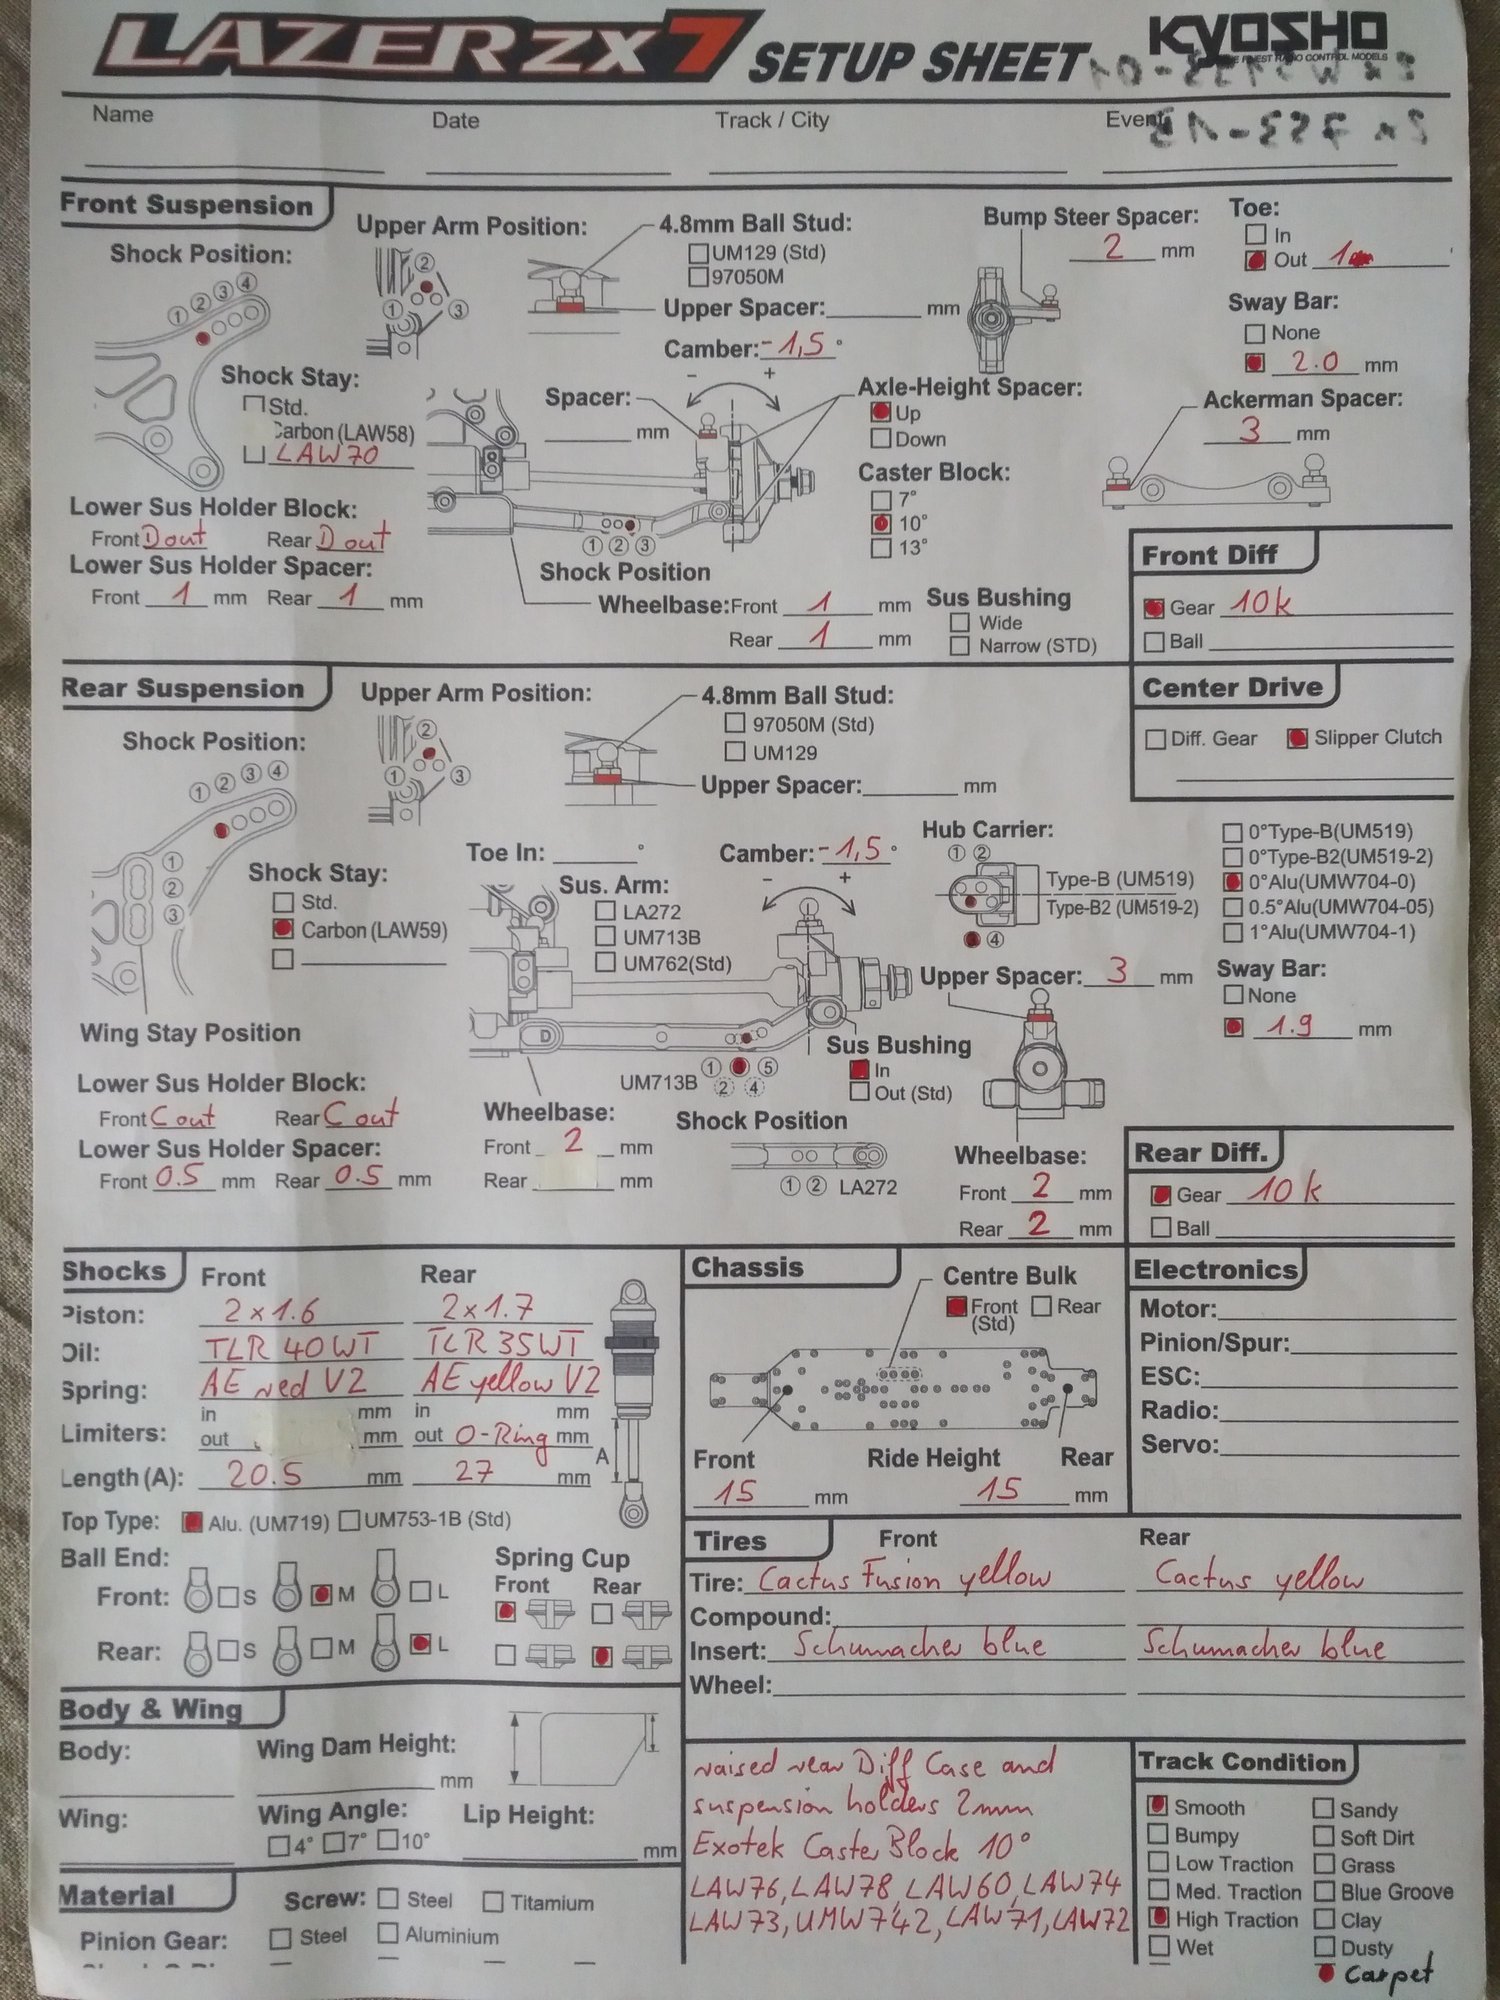 LAZER ZX7 SETUP SHEET
KYOSHO
THE FINEST RADIO CONTROL MODELS
Name Date Track / City Event
Front Suspension
Shock Position:
① ② ③ ④
Upper Arm Position:
② ① ③
4.8mm Ball Stud:
UM129 (Std)
97050M
Upper Spacer: mm
Camber: -1,5 °
Bump Steer Spacer:
2 mm
Toe:
In
Out 1
Sway Bar:
None
2.0 mm
Shock Stay:
Std.
Carbon (LAW58)
LAW70
Spacer: mm
− +
Axle-Height Spacer:
Up
Down
Caster Block:
7°
10°
13°
Ackerman Spacer:
3 mm
Lower Sus Holder Block:
Front D out Rear D out
Lower Sus Holder Spacer:
Front 1 mm Rear 1 mm
① ② ③
Shock Position
Wheelbase: Front 1 mm
Rear 1 mm
Sus Bushing
Wide
Narrow (STD)
Front Diff
Gear 10k
Ball
Rear Suspension
Shock Position:
① ② ③ ④
① ② ③
Upper Arm Position:
② ① ③
4.8mm Ball Stud:
97050M (Std)
UM129
Upper Spacer: mm
Center Drive
Diff. Gear Slipper Clutch
Shock Stay:
Std.
Carbon (LAW59)
Wing Stay Position
Toe In: °
Camber: -1,5 °
− +
Sus. Arm:
LA272
UM713B
UM762(Std)
Hub Carrier:
① ②
Type-B (UM519)
Type-B2 (UM519-2)
④
0°Type-B(UM519)
0°Type-B2(UM519-2)
0°Alu(UMW704-0)
0.5°Alu(UMW704-05)
1°Alu(UMW704-1)
Upper Spacer: 3 mm
Sway Bar:
None
1.9 mm
D
UM713B ① ⑤
② ④
Sus Bushing
In
Out (Std)
Lower Sus Holder Block:
Front C out Rear C out
Lower Sus Holder Spacer:
Front 0.5 mm Rear 0.5 mm
Wheelbase:
Front 2 mm
Rear mm
Shock Position
① ② LA272
Wheelbase:
Front 2 mm
Rear 2 mm
Rear Diff.
Gear 10k
Ball
Shocks Front Rear
Piston: 2x1.6 2x1.7
Oil: TLR 40WT TLR 35WT
Spring: AE red V2 AE yellow V2
in mm in mm
Limiters: out mm out O-Ring mm
Length (A): 20.5 mm 27 mm
A
Top Type: Alu. (UM719) UM753-1B (Std)
Ball End:
Front: S M L
Rear: S M L
Spring Cup
Front Rear
Chassis
Centre Bulk
Front (Std) Rear
Front Ride Height Rear
15 mm 15 mm
Electronics
Motor:
Pinion/Spur:
ESC:
Radio:
Servo:
Tires Front Rear
Tire: Cactus Fusion yellow Cactus yellow
Compound:
Insert: Schumacher blue Schumacher blue
Wheel:
Body & Wing
Body:
Wing Dam Height:
mm
Wing:
Wing Angle:
4° 7° 10°
Lip Height:
mm
Material
Screw: Steel Titamium
Pinion Gear: Steel Aluminium
raised rear Diff Case and
suspension holders 2mm
Exotek Caster Block 10°
LAW76, LAW78, LAW60, LAW74
LAW73, UMW742, LAW71, LAW72
Track Condition
Smooth Sandy
Bumpy Soft Dirt
Low Traction Grass
Med. Traction Blue Groove
High Traction Clay
Wet Dusty
Carpet